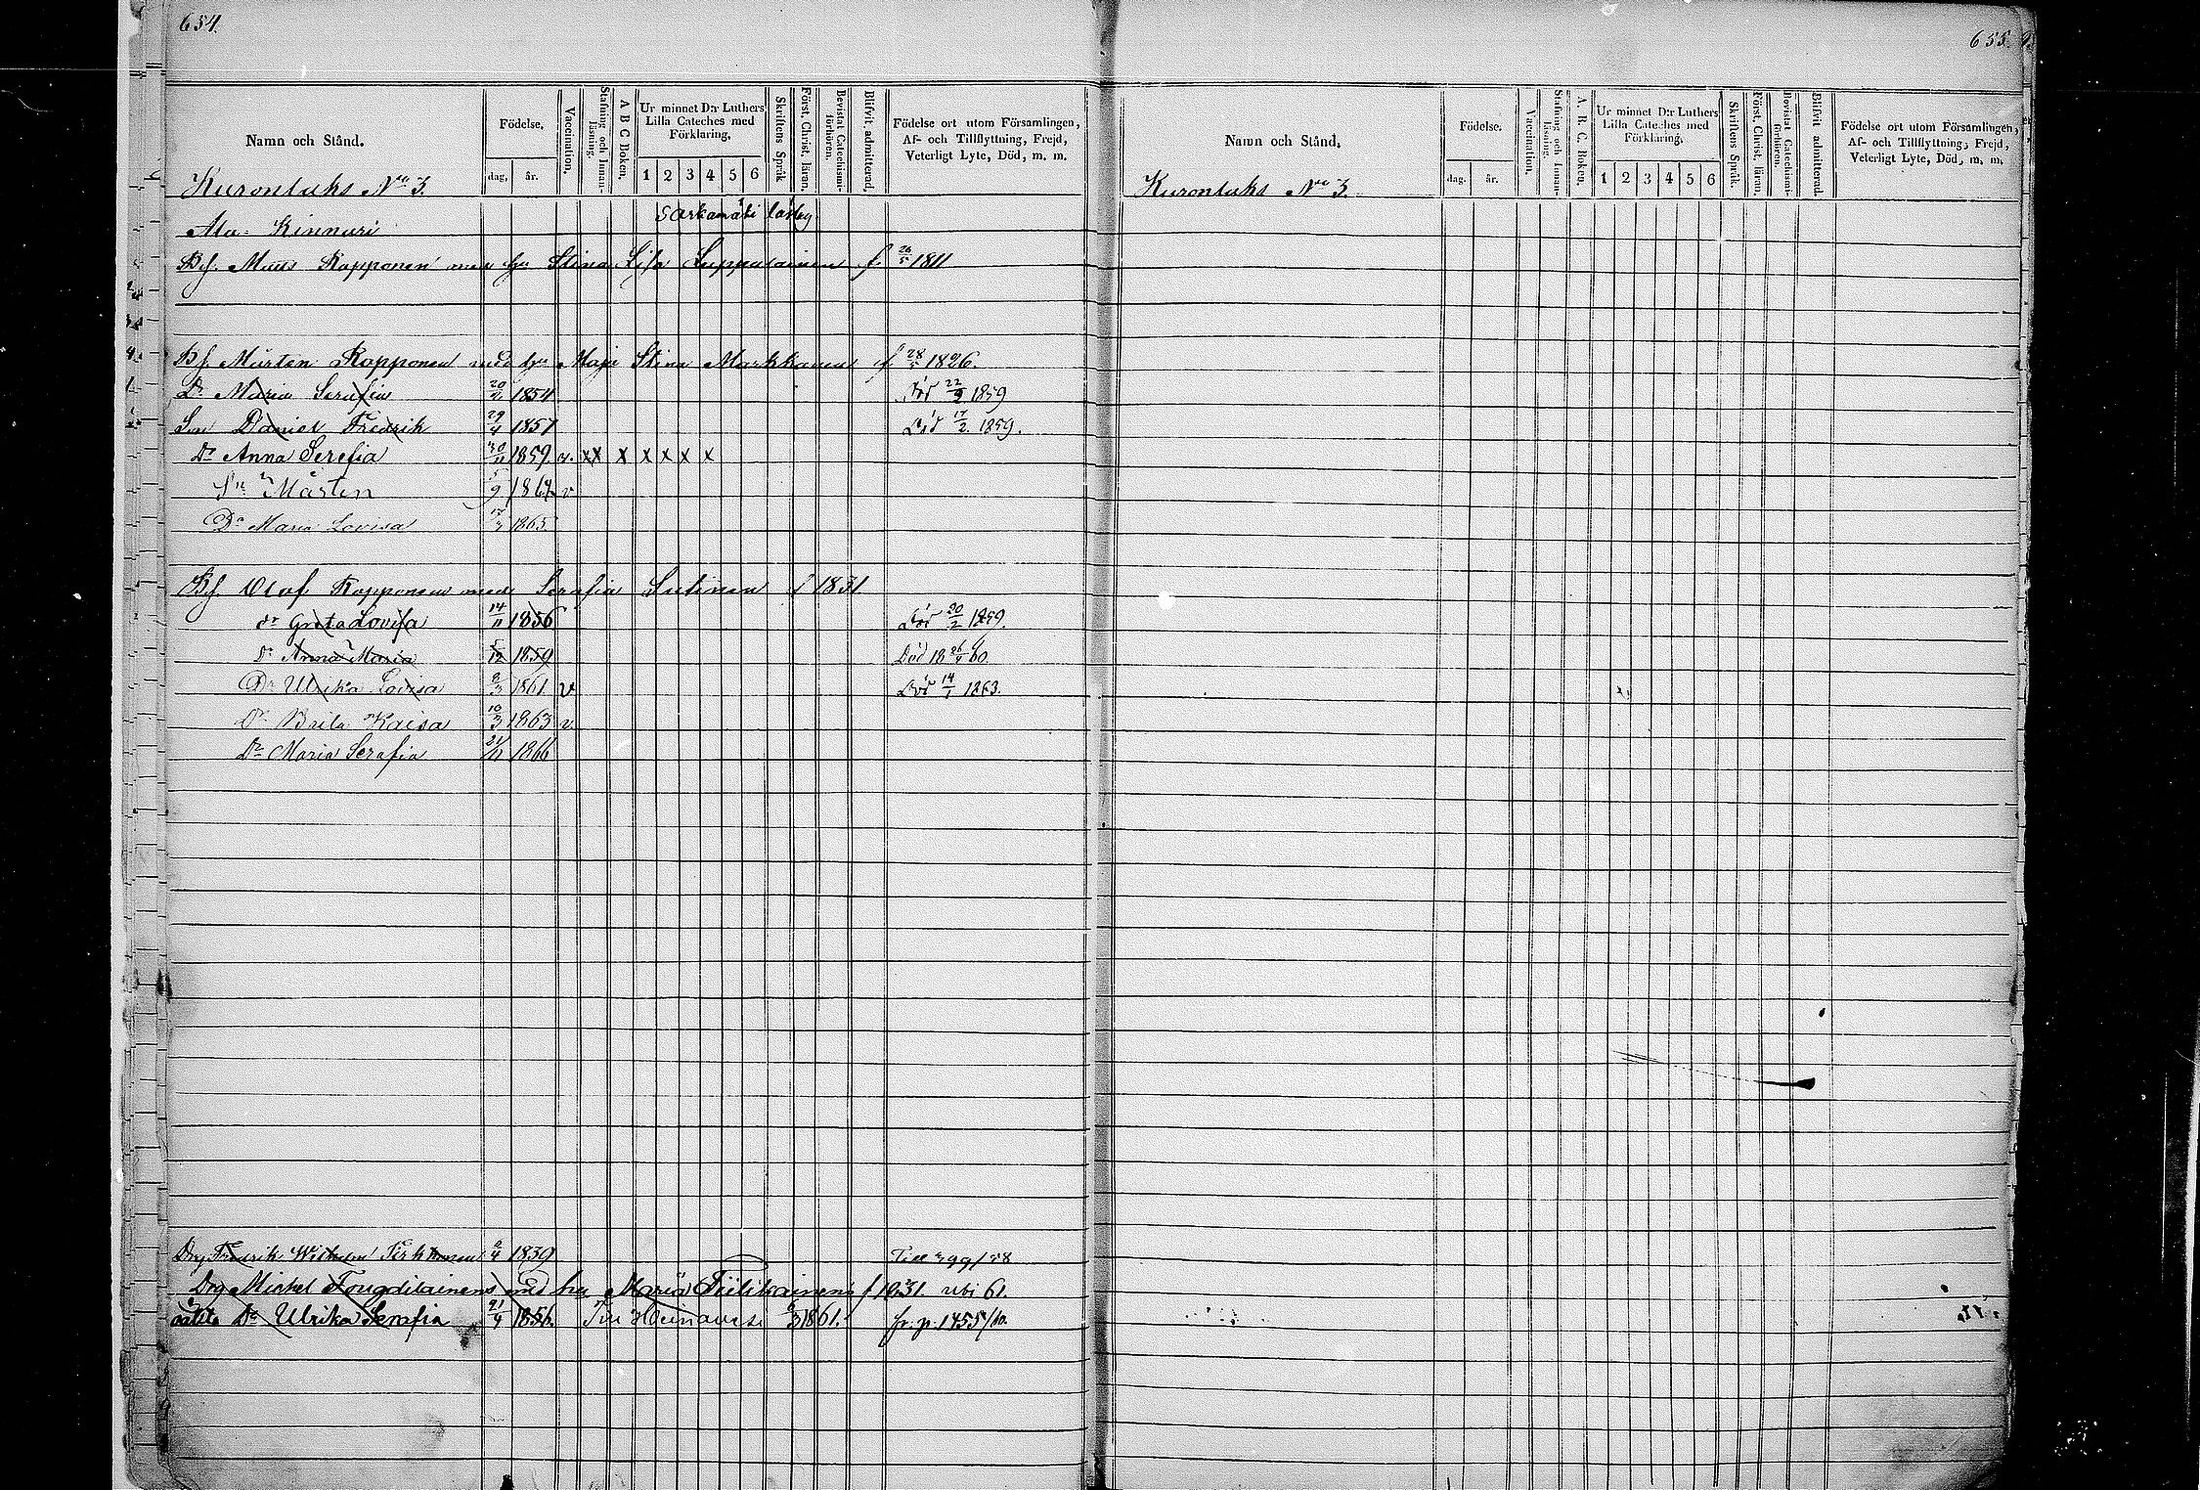 654.
Namn och Stånd.
Födelse.
dag. år.
Vaccination.
Stafning och Innanläsning.
A B C Boken.
Ur minnet D:r Luthers Lilla Cateches med Förklaring.
1 2 3 4 5 6
Skriftens Språk
Förståt. Christ. läran.
Bevistat Catechismi-förhören.
Blifvit admitterad.
Födelse ort utom Församlingen,
Af- och Tillflyttning, Frejd,
Veterligt Lyte, Död, m. m.
Kuronlaks No 3.
Ala-Kinnari
Bf. Matts Kopponen med hu Stina Lisa f 26/5 1811
Bf. Mårten Kopponen med hu Maja Stina Markkanen f 28/5 1826.
Dr Maria Serafia 1854 Död 22/2 1859
Son Daniel Fredrik 29/4 1857 Död 17/2 1859.
Dr Anna Serefia 30/11 1859 v. x x x x x x x
Sn Mårten 5/9 1861 v
Dr Maria Lovisa 17/3 1865
Bf. Olof Kopponen med Serafia Sutinen f 1831
dr Greta Lovisa 14/11 1856 Död 20/2 1859.
Dr Anna Maria 5/12 1859 Död 18 26/4 60.
Dr Ulrika Lovisa 2/3 1861 v Död 14/1 1863.
Dr Brita Kaisa 10/3 1863 v
Dr Maria Serafia 21/11 1866
Drg Fredrik Wilhelm Tirkkonen 2/4 1839 Till 399/58
Drg Mickel med hu Maria Tiilikainen f 1831. ubi 61.
Dr Ulrika Serafia 21/4 1856. 1861. fr. p. 1455/60.
655.
Namn och Stånd.
Födelse.
dag. år.
Vaccination.
Stafning och Innanläsning.
A. B. C. Boken.
Ur minnet D:r Luthers Lilla Cateches med Förklaring.
1 2 3 4 5 6
Skriftens Språk.
Förståt. Christ. läran.
Bevistat Catechismi-förhören.
Blifvit admitterad.
Födelse ort utom Församlingen,
Af- och Tillflyttning, Frejd,
Veterligt Lyte, Död, m. m.
Kuronlaks No 3.